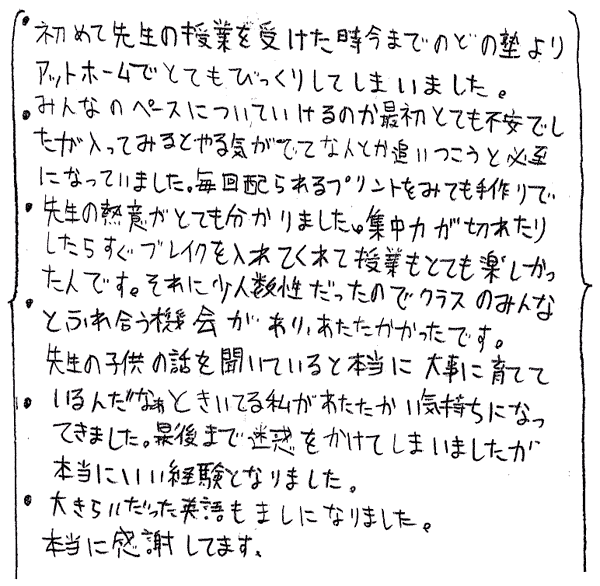 初めて先生の授業を受けた時今までのどの塾より
アットホームでとてもびっくりしてしまいました。
みんなのペースについていけるのか最初とても不安でし
たが入ってみるとやる気がでてなんとか追いつこうと必至
になっていました。毎回配られるプリントをみても手作りで
先生の熱意がとても分かりました。集中力が切れたり
したらすぐブレイクを入れてくれて授業もとても楽しかっ
たんです。それに少人数性だったのでクラスのみんな
とふれ合う機会があり、あたたかかったです。
先生の子供の話を聞いていると本当に大事に育てて
いるんだなぁときいてる私があたたかい気持ちになっ
てきました。最後まで迷惑をかけてしまいましたが
本当にいい経験となりました。
大きらいだった英語もましになりました。
本当に感謝してます。